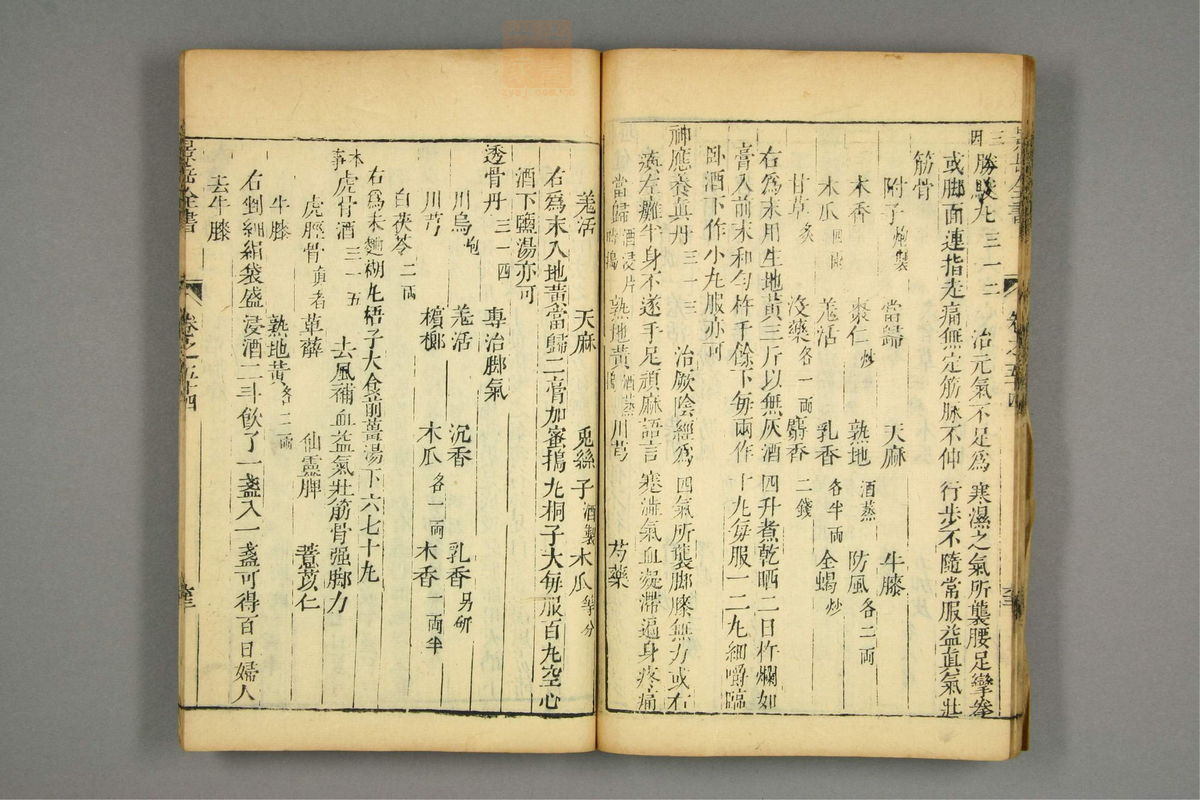 三因勝駿丸三一二 治元氣不足爲寒濕之氣所襲腰足攣拳
或脚面連指走痛無定筋脉不伸行步不隨常服益眞氣壯
筋骨
附子炮製 當歸 天麻 牛膝
木香 棗仁炒 熟地酒蒸 防風各二兩
木瓜四兩 羗活 乳香各半兩 全蝎炒
甘草炙 沒藥各一兩 麝香二錢
右為末用生地黃三斤以無灰酒四升煮乾晒二日杵爛如
膏入前末和勻杵千餘下每兩作十丸每服一二丸細嚼臨
卧酒下作小丸服亦可
神應養真丹三一三 治厥陰經爲四氣所襲脚膝無力或右
瘓左癱半身不遂手足頑麻語言蹇澁氣血凝滯遍身疼痛
當歸酒浸片時搗 熟地黃酒蒸搗 川芎 芍藥
羗活 天麻 兎絲子酒製 木瓜等分
右爲末入地黃當歸二膏加蜜搗丸桐子大每服百丸空心
酒下鹽湯亦可
透骨丹三一四 專治脚氣
川烏炮 羗活 沉香 乳香另研
川芎 檳榔 木瓜各一兩 木香一兩半
白茯苓二兩
右爲末麵糊丸梧子大食前薑湯下六七十丸
本事虎骨酒三一五 去風補血益氣壯筋骨强脚力
虎脛骨真者 萆薢 仙靈脾 薏苡仁
牛膝 熟地黃各二兩
右剉細絹袋盛浸酒二斗飲了一盞入一盞可得百日婦人
去牛膝
景岳全書 卷之五十四